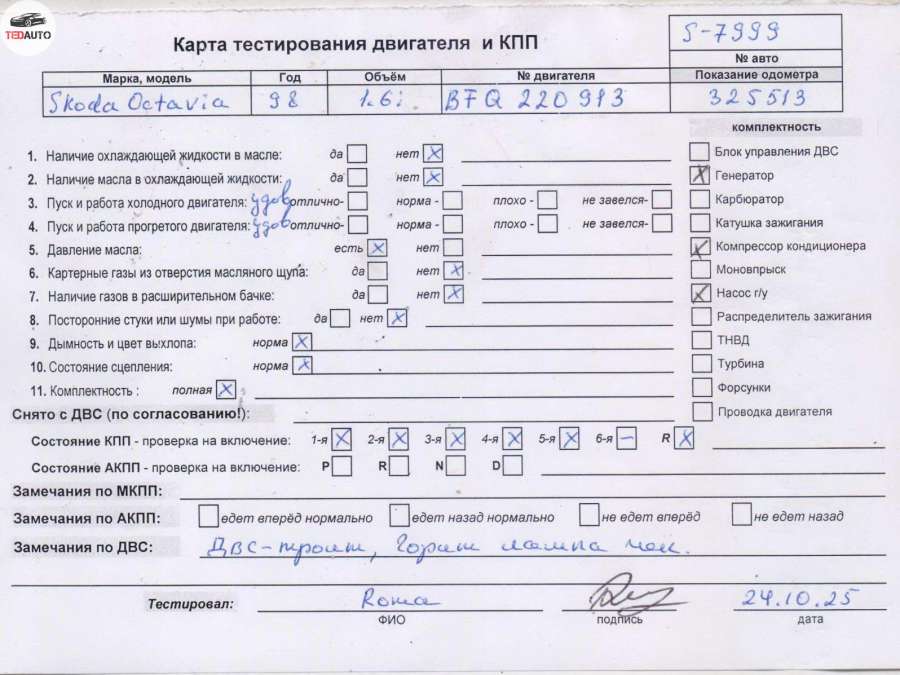 TEDAUTO
Карта тестирования двигателя и КПП
S-7999
№ авто
Марка, модель Год Объём № двигателя Показание одометра
Skoda Octavia 98 1.6i BFQ 220913 325513
комплектность
1. Наличие охлаждающей жидкости в масле: да нет X
2. Наличие масла в охлаждающей жидкости: да нет X
3. Пуск и работа холодного двигателя: удов отлично- норма - плохо - не завелся-
4. Пуск и работа прогретого двигателя: удов отлично- норма - плохо - не завелся-
5. Давление масла: есть X нет
6. Картерные газы из отверстия масляного щупа: да нет X
7. Наличие газов в расширительном бачке: да нет X
8. Посторонние стуки или шумы при работе: да нет X
9. Дымность и цвет выхлопа: норма X
10. Состояние сцепления: норма X
11. Комплектность : полная X
Блок управления ДВС
X Генератор
Карбюратор
Катушка зажигания
X Компрессор кондиционера
Моновпрыск
X Насос г/у
Распределитель зажигания
ТНВД
Турбина
Форсунки
Проводка двигателя
Снято с ДВС (по согласованию!):
Состояние КПП - проверка на включение: 1-я X 2-я X 3-я X 4-я X 5-я X 6-я – R X
Состояние АКПП - проверка на включение: P R N D
Замечания по МКПП:
Замечания по АКПП: едет вперёд нормально едет назад нормально не едет вперёд не едет назад
Замечания по ДВС: ДВС-троит, Горит лампа чек.
Тестировал: Roma 24.10.25
ФИО подпись дата